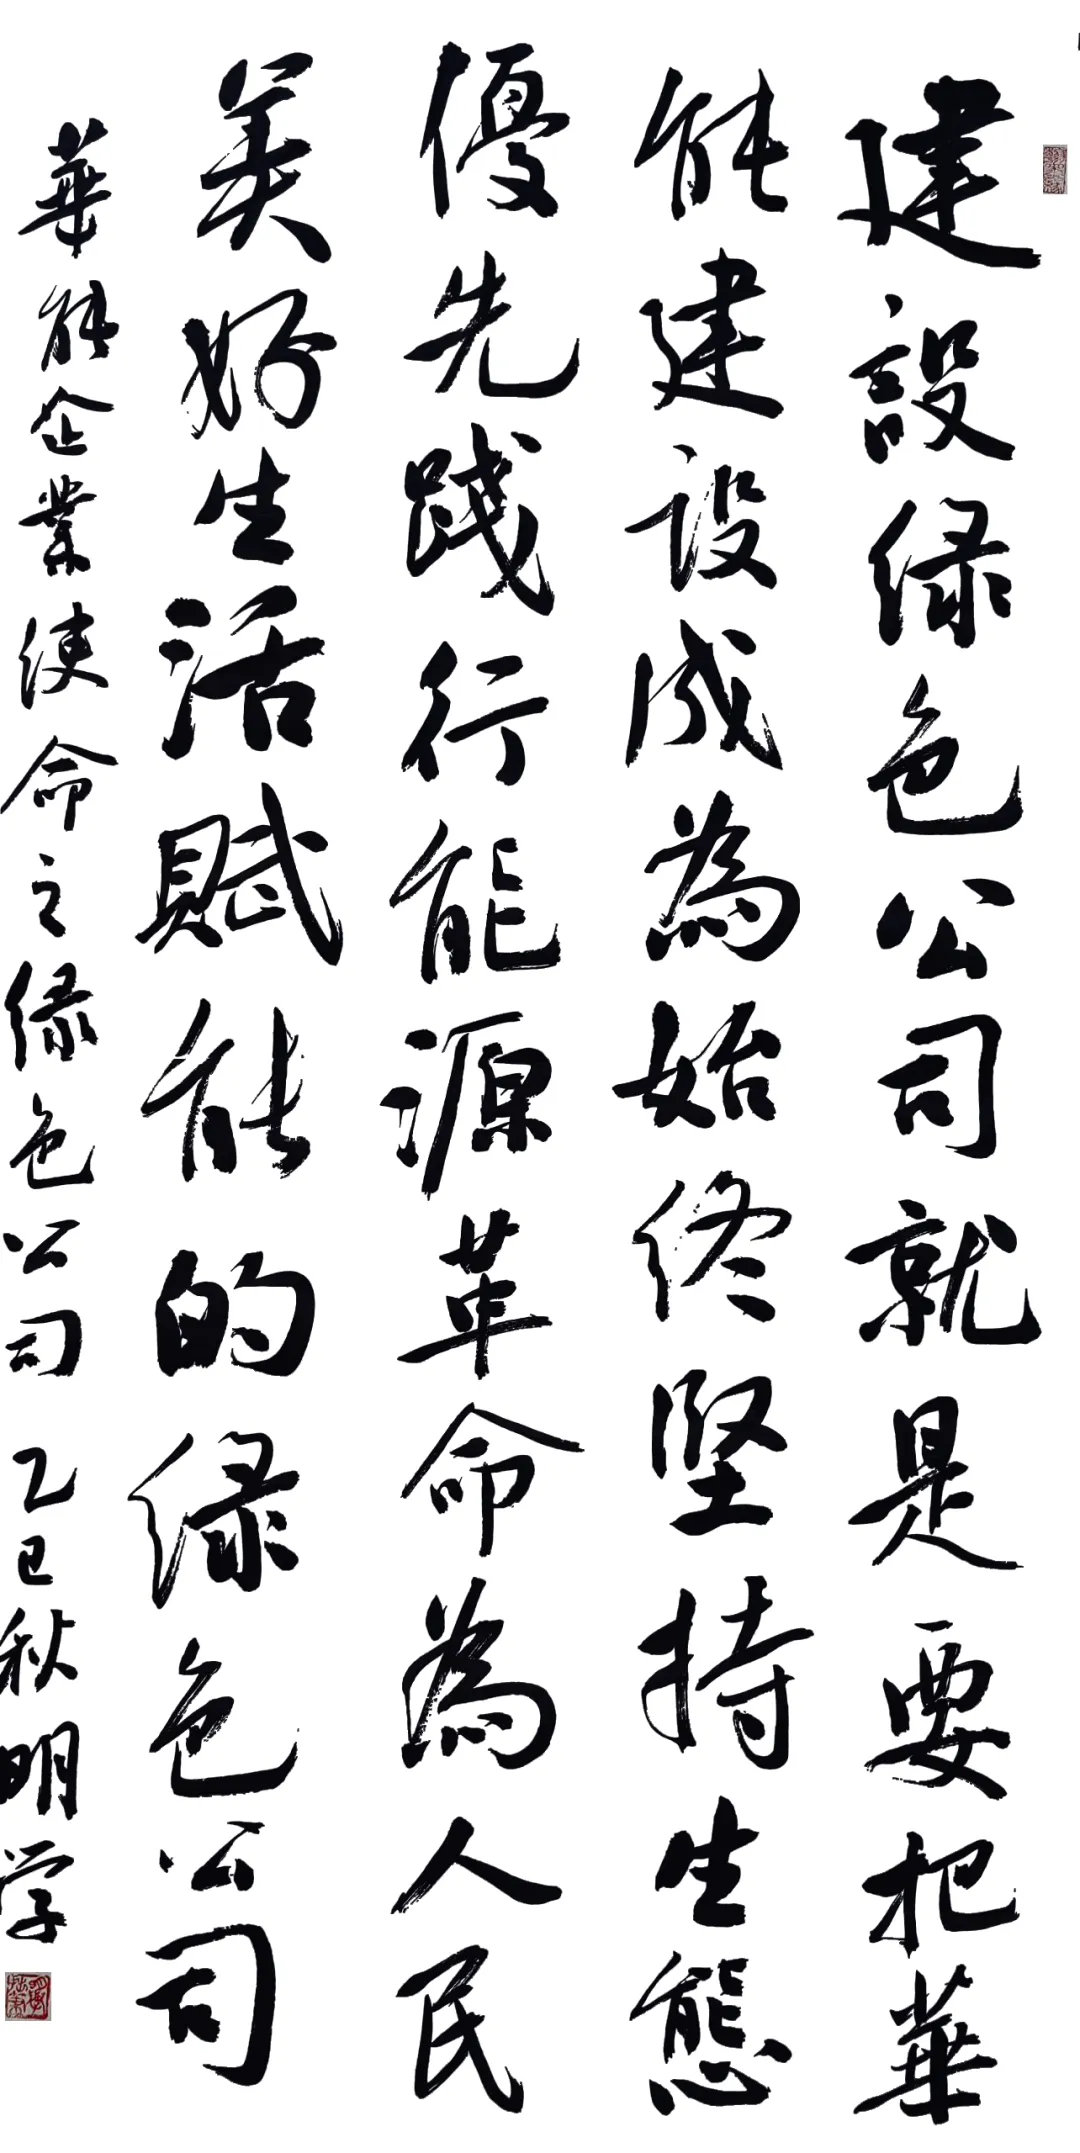 建設绿色公司就是要把華
能建设成為始终坚持生態
優先踐行能源革命為人民
美好生活賦能的绿色公司
華能企業使命之绿色公司 乙巳秋明学